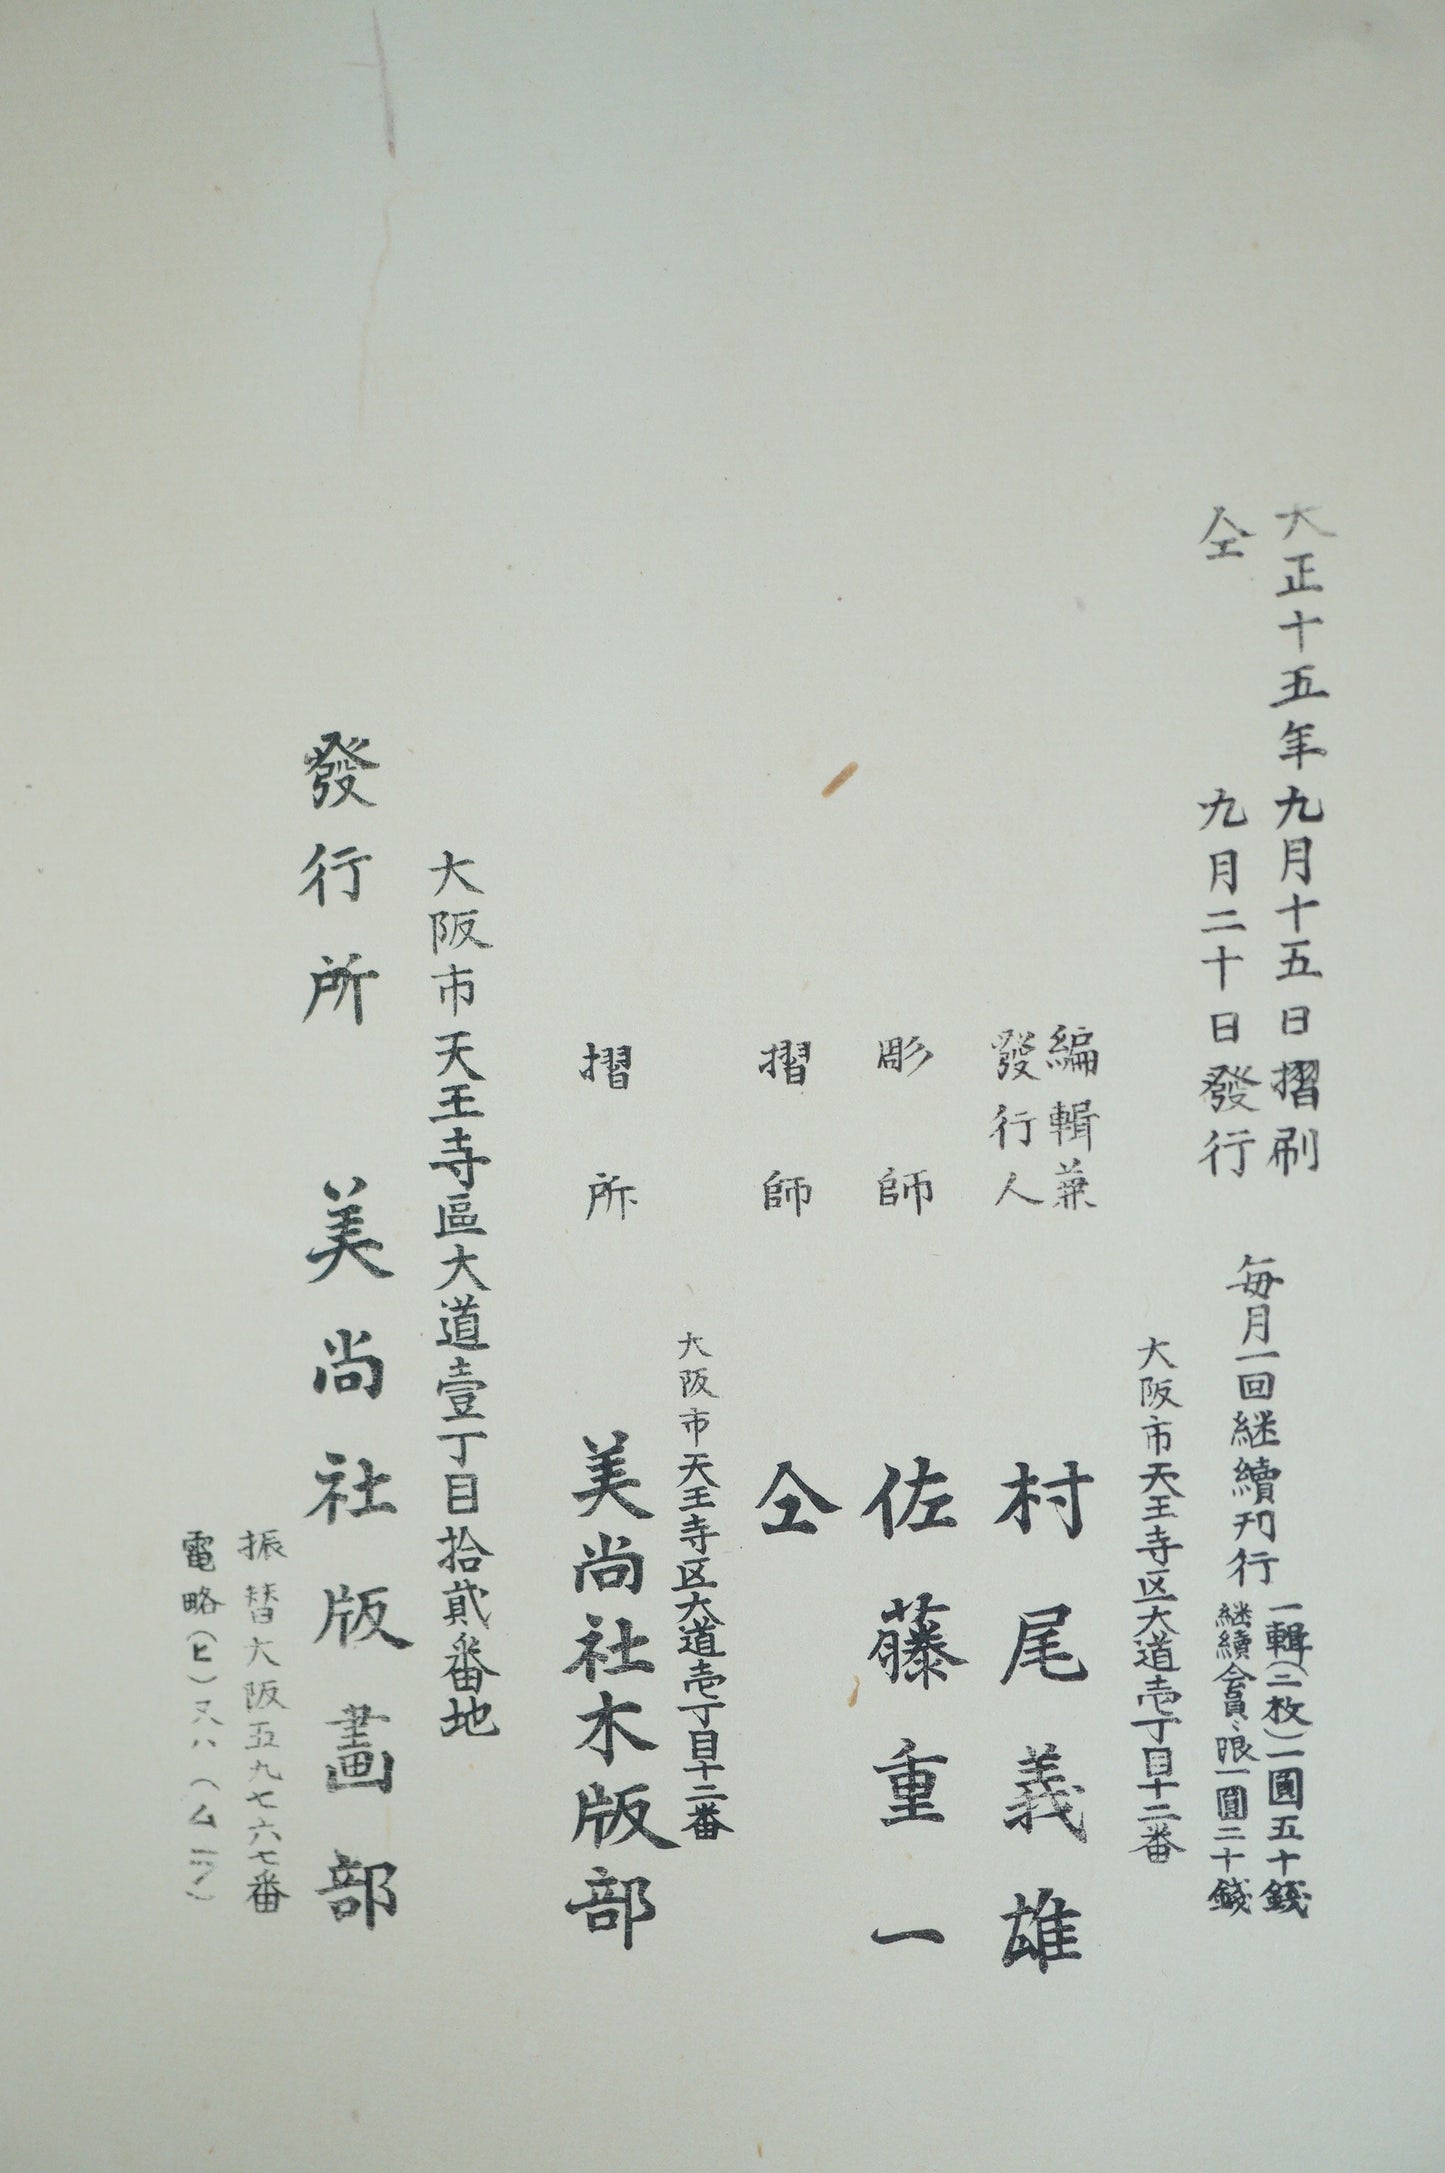 大正十五年九月十五日摺刷
仝 九月二十日發行
毎月一回継續刊行
一輯(二枚)一圓五十錢
継續會員ニ限一圓二十錢
大阪市天王寺区大道壱丁目十二番
編輯兼
發行人 村尾義雄
彫師 佐藤重一
摺師 仝
大阪市天王寺区大道壱丁目十二番
摺所 美尚社木版部
大阪市天王寺區大道壹丁目拾貳番地
發行所 美尚社版畫部
振替大阪五九七六七番
電略(ヒ)又ハ(